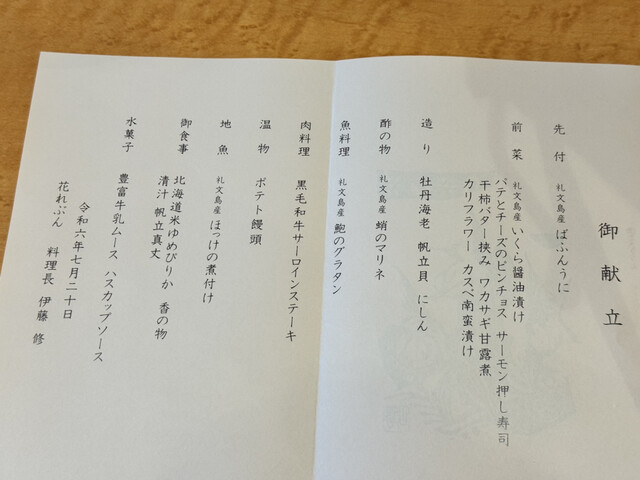 御献立
先付 礼文島産 ばふんうに
前菜 礼文島産 いくら醤油漬け
パテとチーズのピンチョス サーモン押し寿司
干柿バター挟み ワカサギ甘露煮
カリフラワー カスベ南蛮漬け
造り 牡丹海老 帆立貝 にしん
酢の物 礼文島産 蛸のマリネ
魚料理 礼文島産 鮑のグラタン
肉料理 黒毛和牛サーロインステーキ
温物 ポテト饅頭
地魚 礼文島産 ほっけの煮付け
御食事 北海道米ゆめぴりか 香の物
清汁 帆立真丈
水菓子 豊富牛乳ムース ハスカップソース
令和六年七月二十日
花れぶん 料理長 伊藤 修